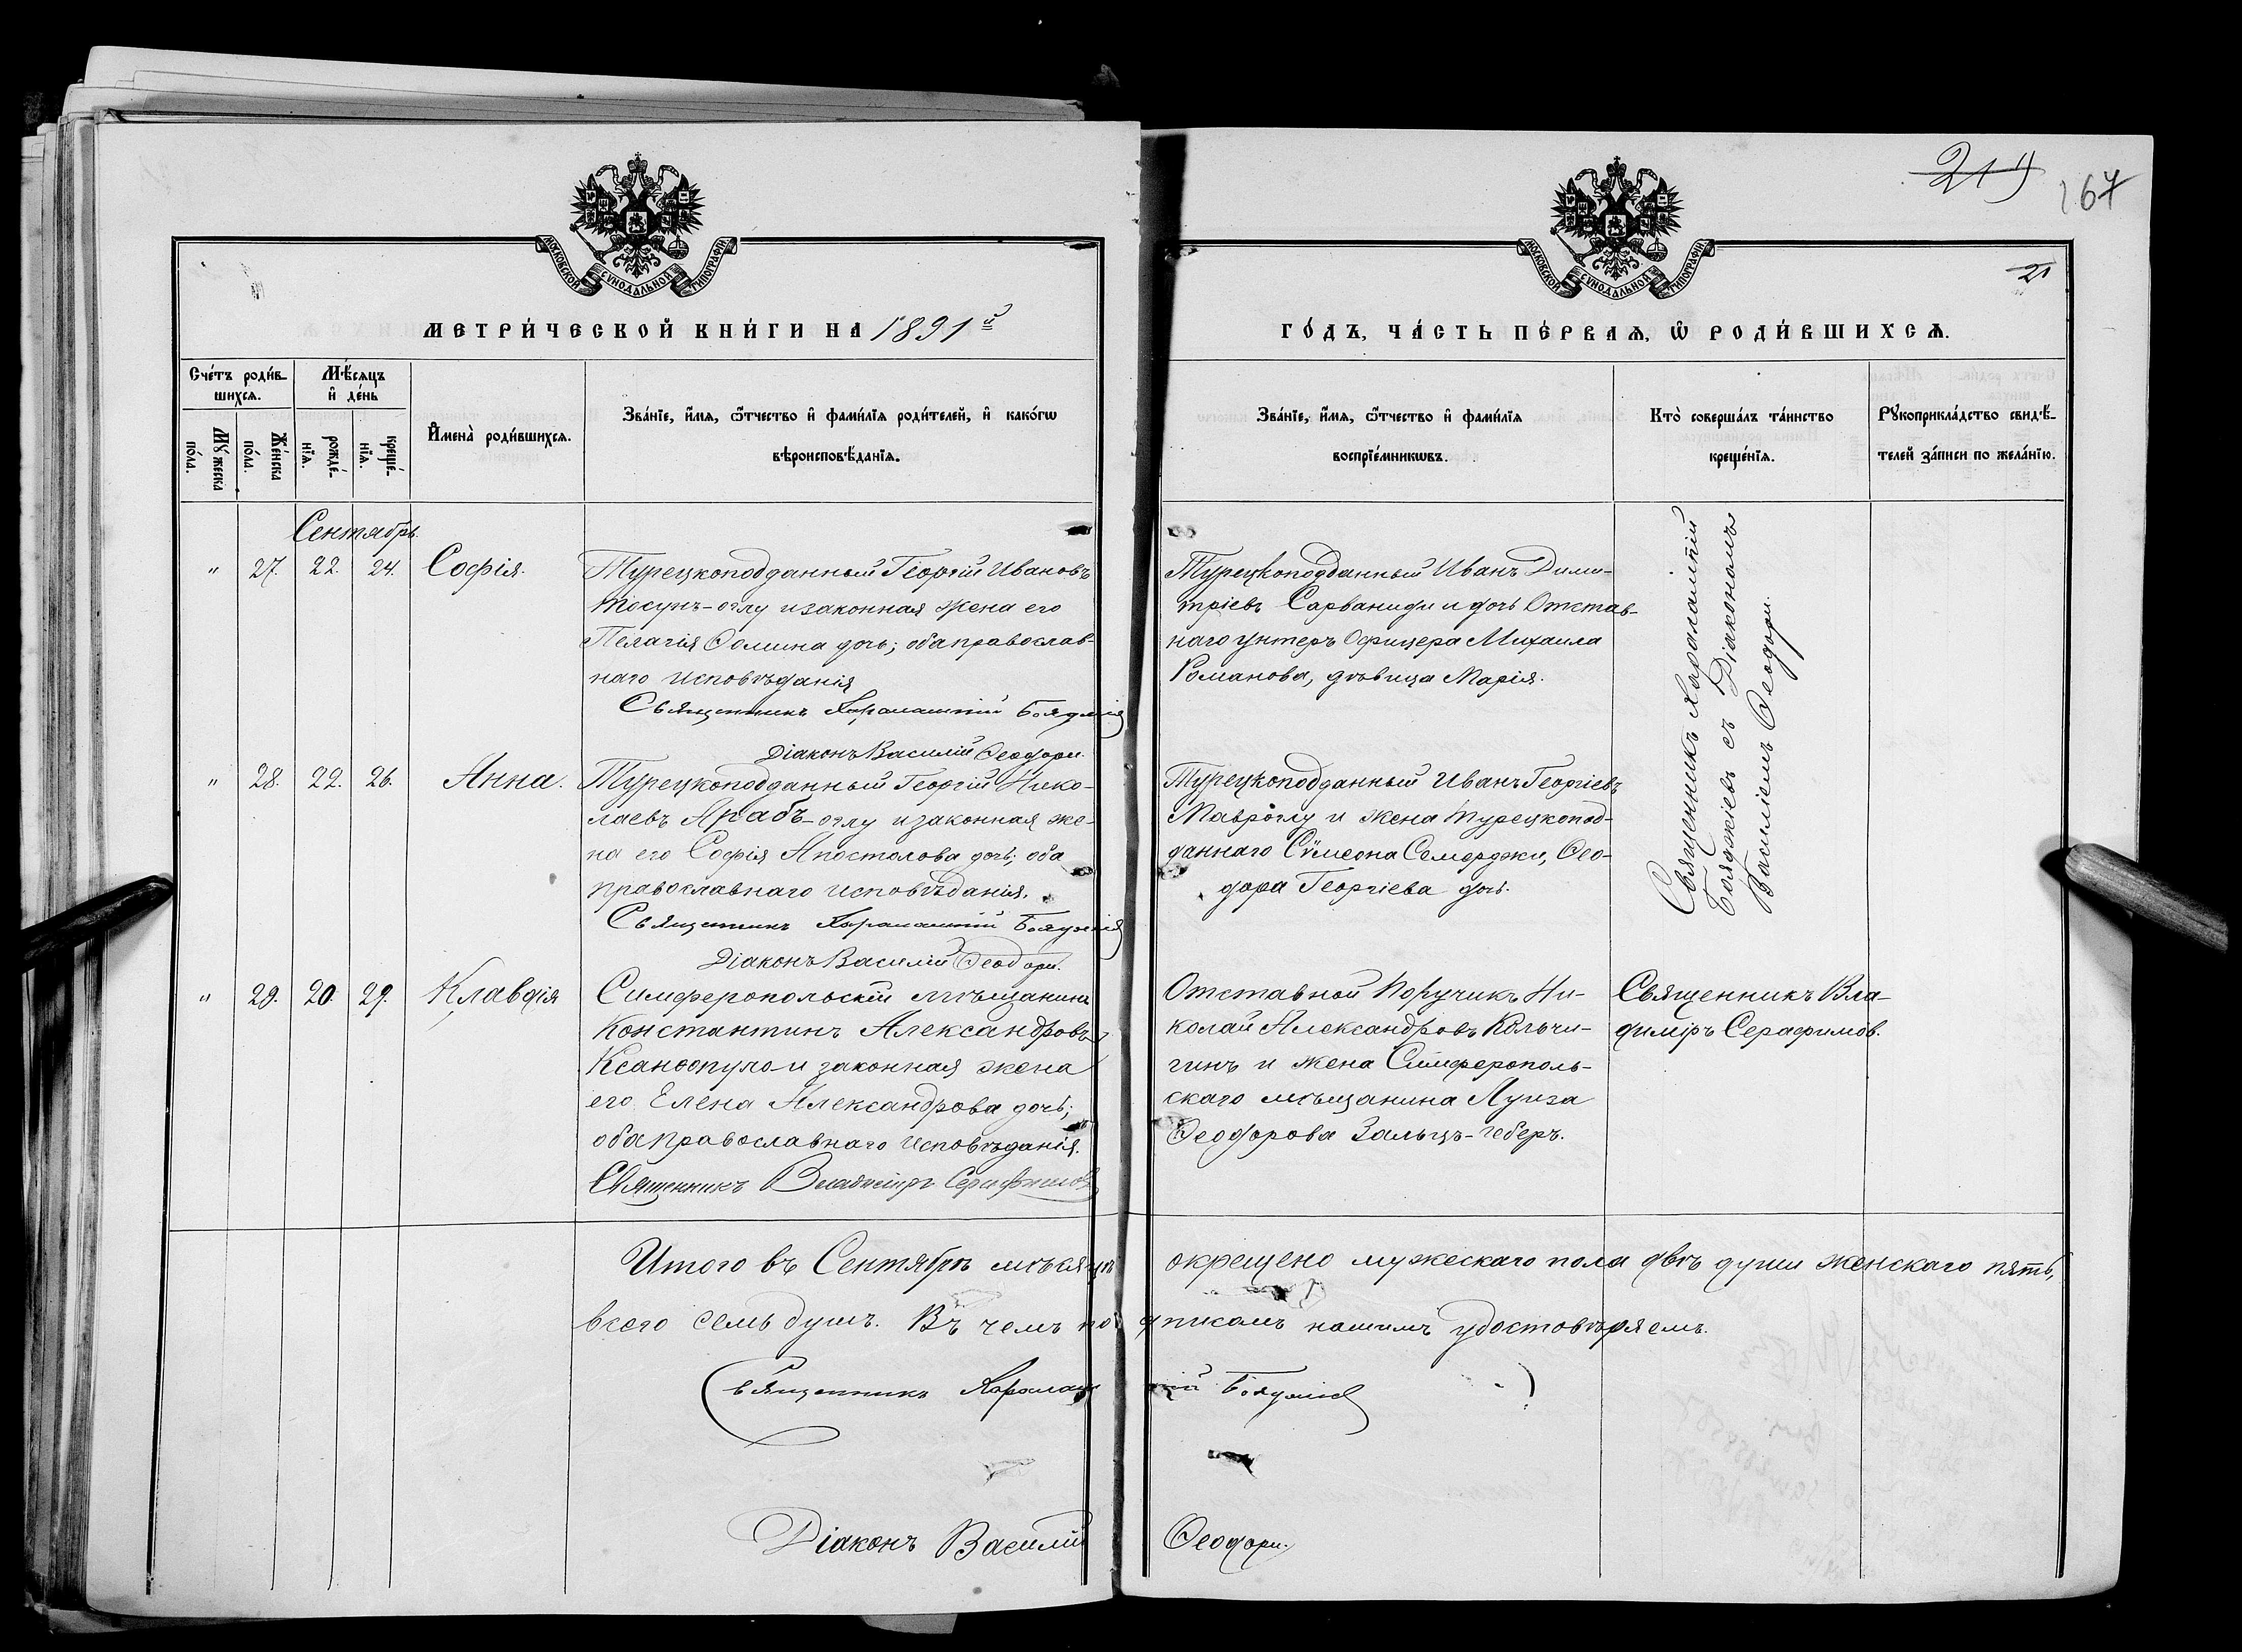 219
167
21
МОСКОВСКОЙ СѴНОДАЛЬНОЙ ТИПОГРАФІИ
МОСКОВСКОЙ СѴНОДАЛЬНОЙ ТИПОГРАФІИ
МЕТРИ́ЧЕСКОЙ КНИ́ГИ НА 1891й
ГО́ДЪ, ЧА́СТЬ ПЕ́РВАѦ, Ѡ҆ РОДИ́ВШИХСѦ.
Сче́тъ роди́в-
шихсѧ.
Мꙋ́жеска по́ла.
Же́нска по́ла.
Мѣ́сѧцъ
и҆ де́нь
рожде́-
нїѧ.
креще́-
нїѧ.
И҆мена̀ роди́вшихсѧ.
Зва́нїе, и҆́мѧ, ѻ҆́тчество и҆ фами́лїѧ роди́телей, и҆ како́гѡ
вѣроисповѣ́данїѧ.
Зва́нїе, и҆́мѧ, ѻ҆́тчество и҆ фами́лїѧ
воспрїе́мникѡвъ.
Кто̀ соверша́лъ та́инство
креще́нїѧ.
Рꙋкоприкла́дство свидѣ́-
телей за́писи по жела́нїю.
Сентябрь.
" 27. 22. 24. Софія.
Турецкоподданный Георгій Ивановъ
Тосунъ-оглу и законная жена его
Пелагія Ѳомина дочь; оба православ-
наго исповѣданія
Священникъ Харалампій Бояджіев
Діаконъ Василій Ѳеодори.
Турецкоподданный Иванъ Дими-
тріевъ Сарваниди и дочь Отстав-
наго унтеръ Офицера Михаила
Романова, дѣвица Марія.
Священникъ Харалампій
Бояджіевъ съ Діакономъ
Василіемъ Ѳеодори.
" 28. 22. 26. Анна.
Турецкоподданный Георгій Нико-
лаевъ Арабъ-оглу и законная же-
на его Софія Апостолова дочь; оба
православнаго исповѣданія.
Священникъ Харалампій Бояджіев
Діаконъ Василій Ѳеодори.
Турецкоподданный Иванъ Георгіевъ
Мавроглу и жена турецкопод-
даннаго Сѵмеона Семерджи, Ѳео-
дора Георгіева дочь.
" 29. 20. 29. Клавдія
Симферопольскій мѣщанинъ
Константинъ Александровъ
Ксанѳопуло и законная жена
его Елена Александрова дочь;
оба православнаго исповѣданія.
Священникъ Владиміръ Серафимовъ
Отставной Поручикъ Ни-
колай Александровъ Кольчи-
гинъ и жена Симферополь-
скаго мѣщанина Луиза
Ѳеодорова Зальцъ-геберъ.
Священникъ Вла-
диміръ Серафимов.
Итого въ Сентябрѣ мѣсяцѣ окрещено мужескаго пола двѣ души женскаго пять,
всего семь душъ. Въ чемъ подписомъ нашимъ удостовѣряемъ.
Священникъ Харалампій Бояджіев
Діаконъ Василій Ѳеодори.